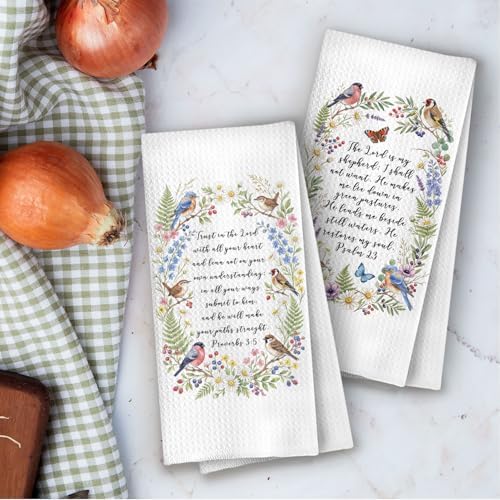 Trust in the Lord
with all your heart
and lean not on your
own understanding;
in all your ways
submit to him,
and he will make
your paths straight.
Proverbs 3:5
The Lord is my
shepherd; I shall
not want. He makes
me lie down in
green pastures.
He leads me beside
still waters. He
restores my soul.
Psalm 23